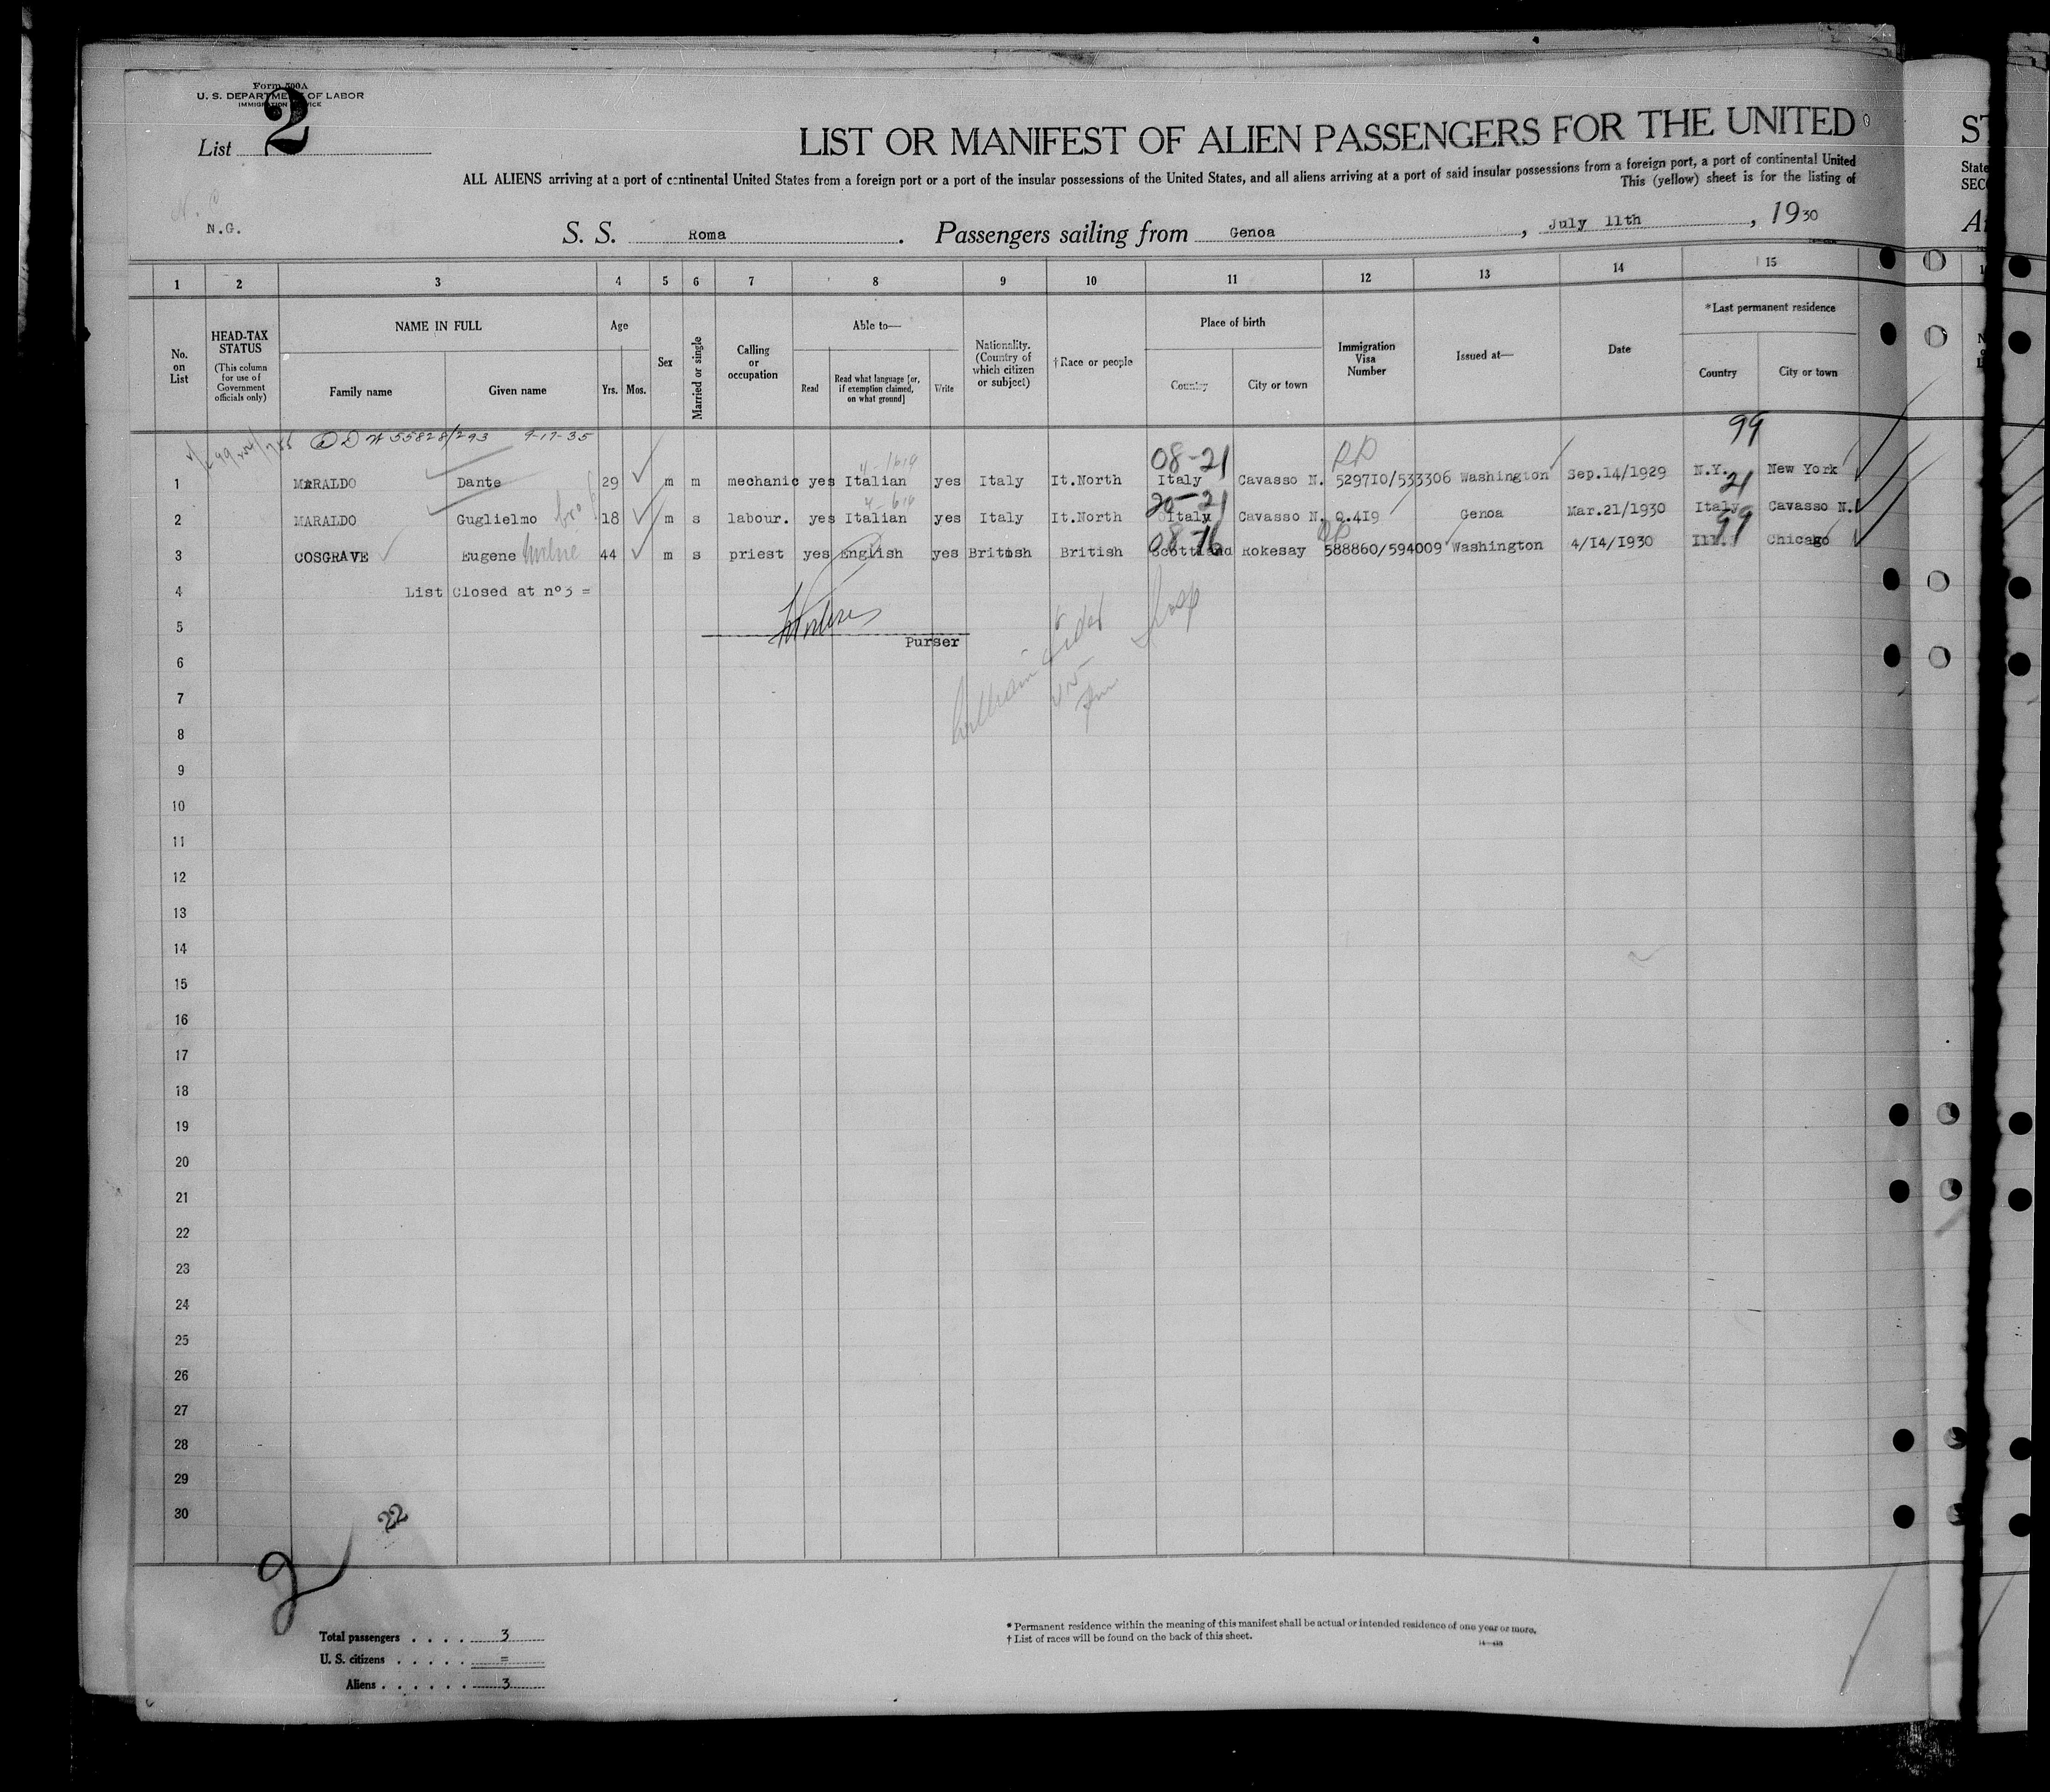 Form 500A
U. S. DEPARTMENT OF LABOR
IMMIGRATION SERVICE
List 2
LIST OR MANIFEST OF ALIEN PASSENGERS FOR THE UNITED
ST
ALL ALIENS arriving at a port of continental United States from a foreign port or a port of the insular possessions of the United States, and all aliens arriving at a port of said insular possessions from a foreign port, a port of continental United
State
This (yellow) sheet is for the listing of
SEC
N.G.
S. S. Roma. Passengers sailing from Genoa, July 11th, 1930
1 2 3 4 5 6 7 8 9 10 11 12 13 14 15
No. on List
HEAD-TAX STATUS (This column for use of Government officials only)
NAME IN FULL
Family name Given name
Age
Yrs. Mos.
Sex
Married or single
Calling or occupation
Able to—
Read
Read what language [or, if exemption claimed, on what ground]
Write
Nationality. (Country of which citizen or subject)
†Race or people
Place of birth
Country City or town
Immigration Visa Number
Issued at—
Date
*Last permanent residence
Country City or town
55828/293 9-17-35
99
08-21
1 MARALDO Dante 29 m m mechanic yes Italian yes Italy It.North Italy Cavasso N. 529710/533306 Washington Sep.14/1929 N.Y. New York
20-21 21
2 MARALDO Guglielmo bro 18 m s labour. yes Italian yes Italy It.North Italy Cavasso N. Q.419 Genoa Mar.21/1930 Italy Cavasso N.
08-76 99
3 COSGRAVE Eugene 44 m s priest yes English yes British British Scottland Rokesay 588860/594009 Washington 4/14/1930 Ill. Chicago
4 List Closed at nº3 =
5
Purser
6
7
8
9
10
11
12
13
14
15
16
17
18
19
20
21
22
23
24
25
26
27
28
29
30
22
2
Total passengers . . . . 3
U. S. citizens . . . . . =
Aliens . . . . . . 3
* Permanent residence within the meaning of this manifest shall be actual or intended residence of one year or more.
† List of races will be found on the back of this sheet.